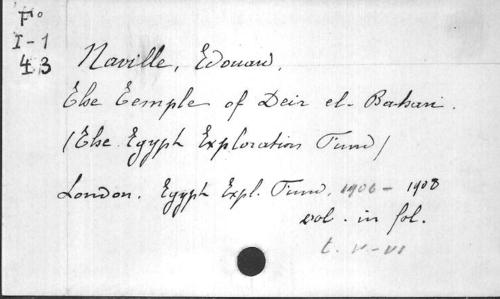 F°
I-1
43
Naville, Edouard.
The Temple of Deir el-Bahari.
(The Egypt Exploration Fund)
London. Egypt Expl. Fund. 1906 – 1908
vol. in fol.
t. V-VI